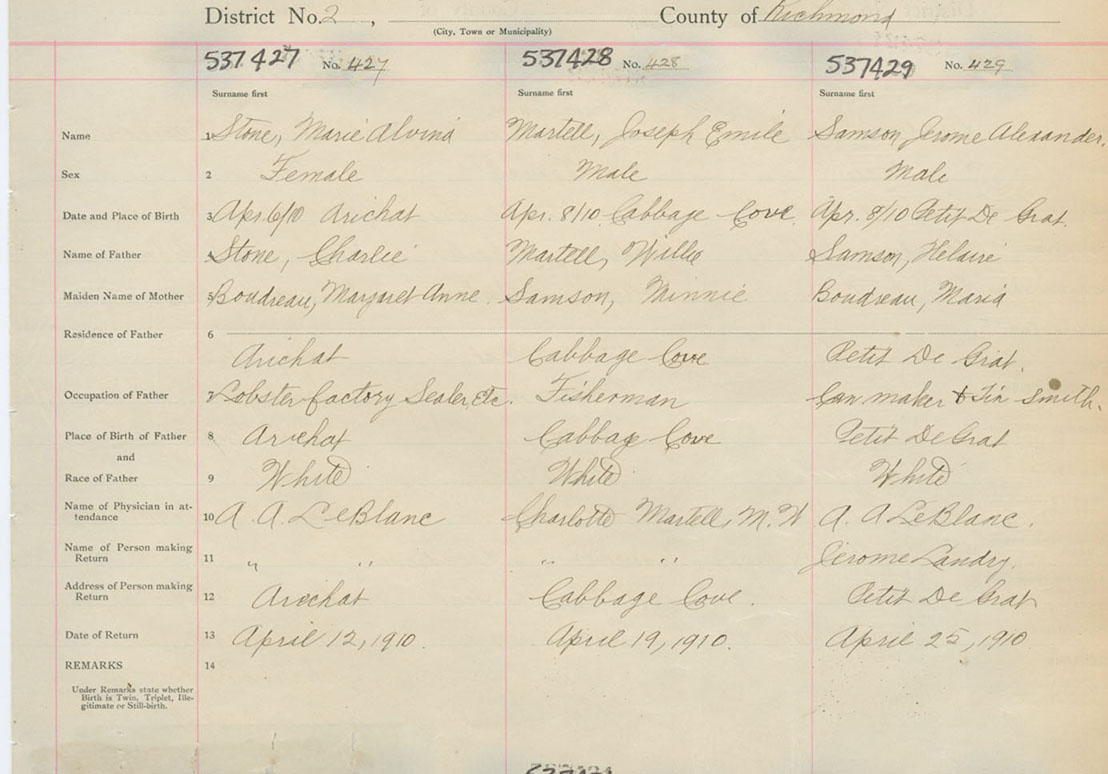 District No. 2, County of Richmond
(City, Town or Municipality)
537427 No. 427 537428 No. 428 537429 No. 429
Surname first Surname first Surname first
Name 1 Stone, Marie Alvina Martell, Joseph Emile Samson, Jerome Alexander.
Sex 2 Female Male Male
Date and Place of Birth 3 Apr. 6/10 Arichat Apr. 8/10 Cabbage Cove. Apr. 8/10 Petit De Grat.
Name of Father 4 Stone, Charlie Martell, Willie Samson, Helaire
Maiden Name of Mother 5 Boudreau, Margaret Anne. Samson, Minnie Boudreau, Maria
Residence of Father 6
Arichat Cabbage Cove Petit De Grat.
Occupation of Father 7 Lobster factory Sealer, Etc. Fisherman Can maker & Tin Smith.
Place of Birth of Father 8 Arichat Cabbage Cove Petit De Grat
and
Race of Father 9 White White White
Name of Physician in at-
tendance 10 A. A. LeBlanc Charlotte Martell, M. W A. A LeBlanc.
Name of Person making
Return 11 " " " " Jerome Landry.
Address of Person making
Return 12 Arichat Cabbage Cove. Petit De Grat
Date of Return 13 April 12, 1910. April 19, 1910. April 25, 1910
REMARKS 14
Under Remarks state whether
Birth is Twin, Triplet, Ille-
gitimate or Still-birth.